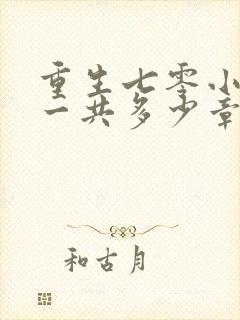 重生七零小
一共多少章
和古月